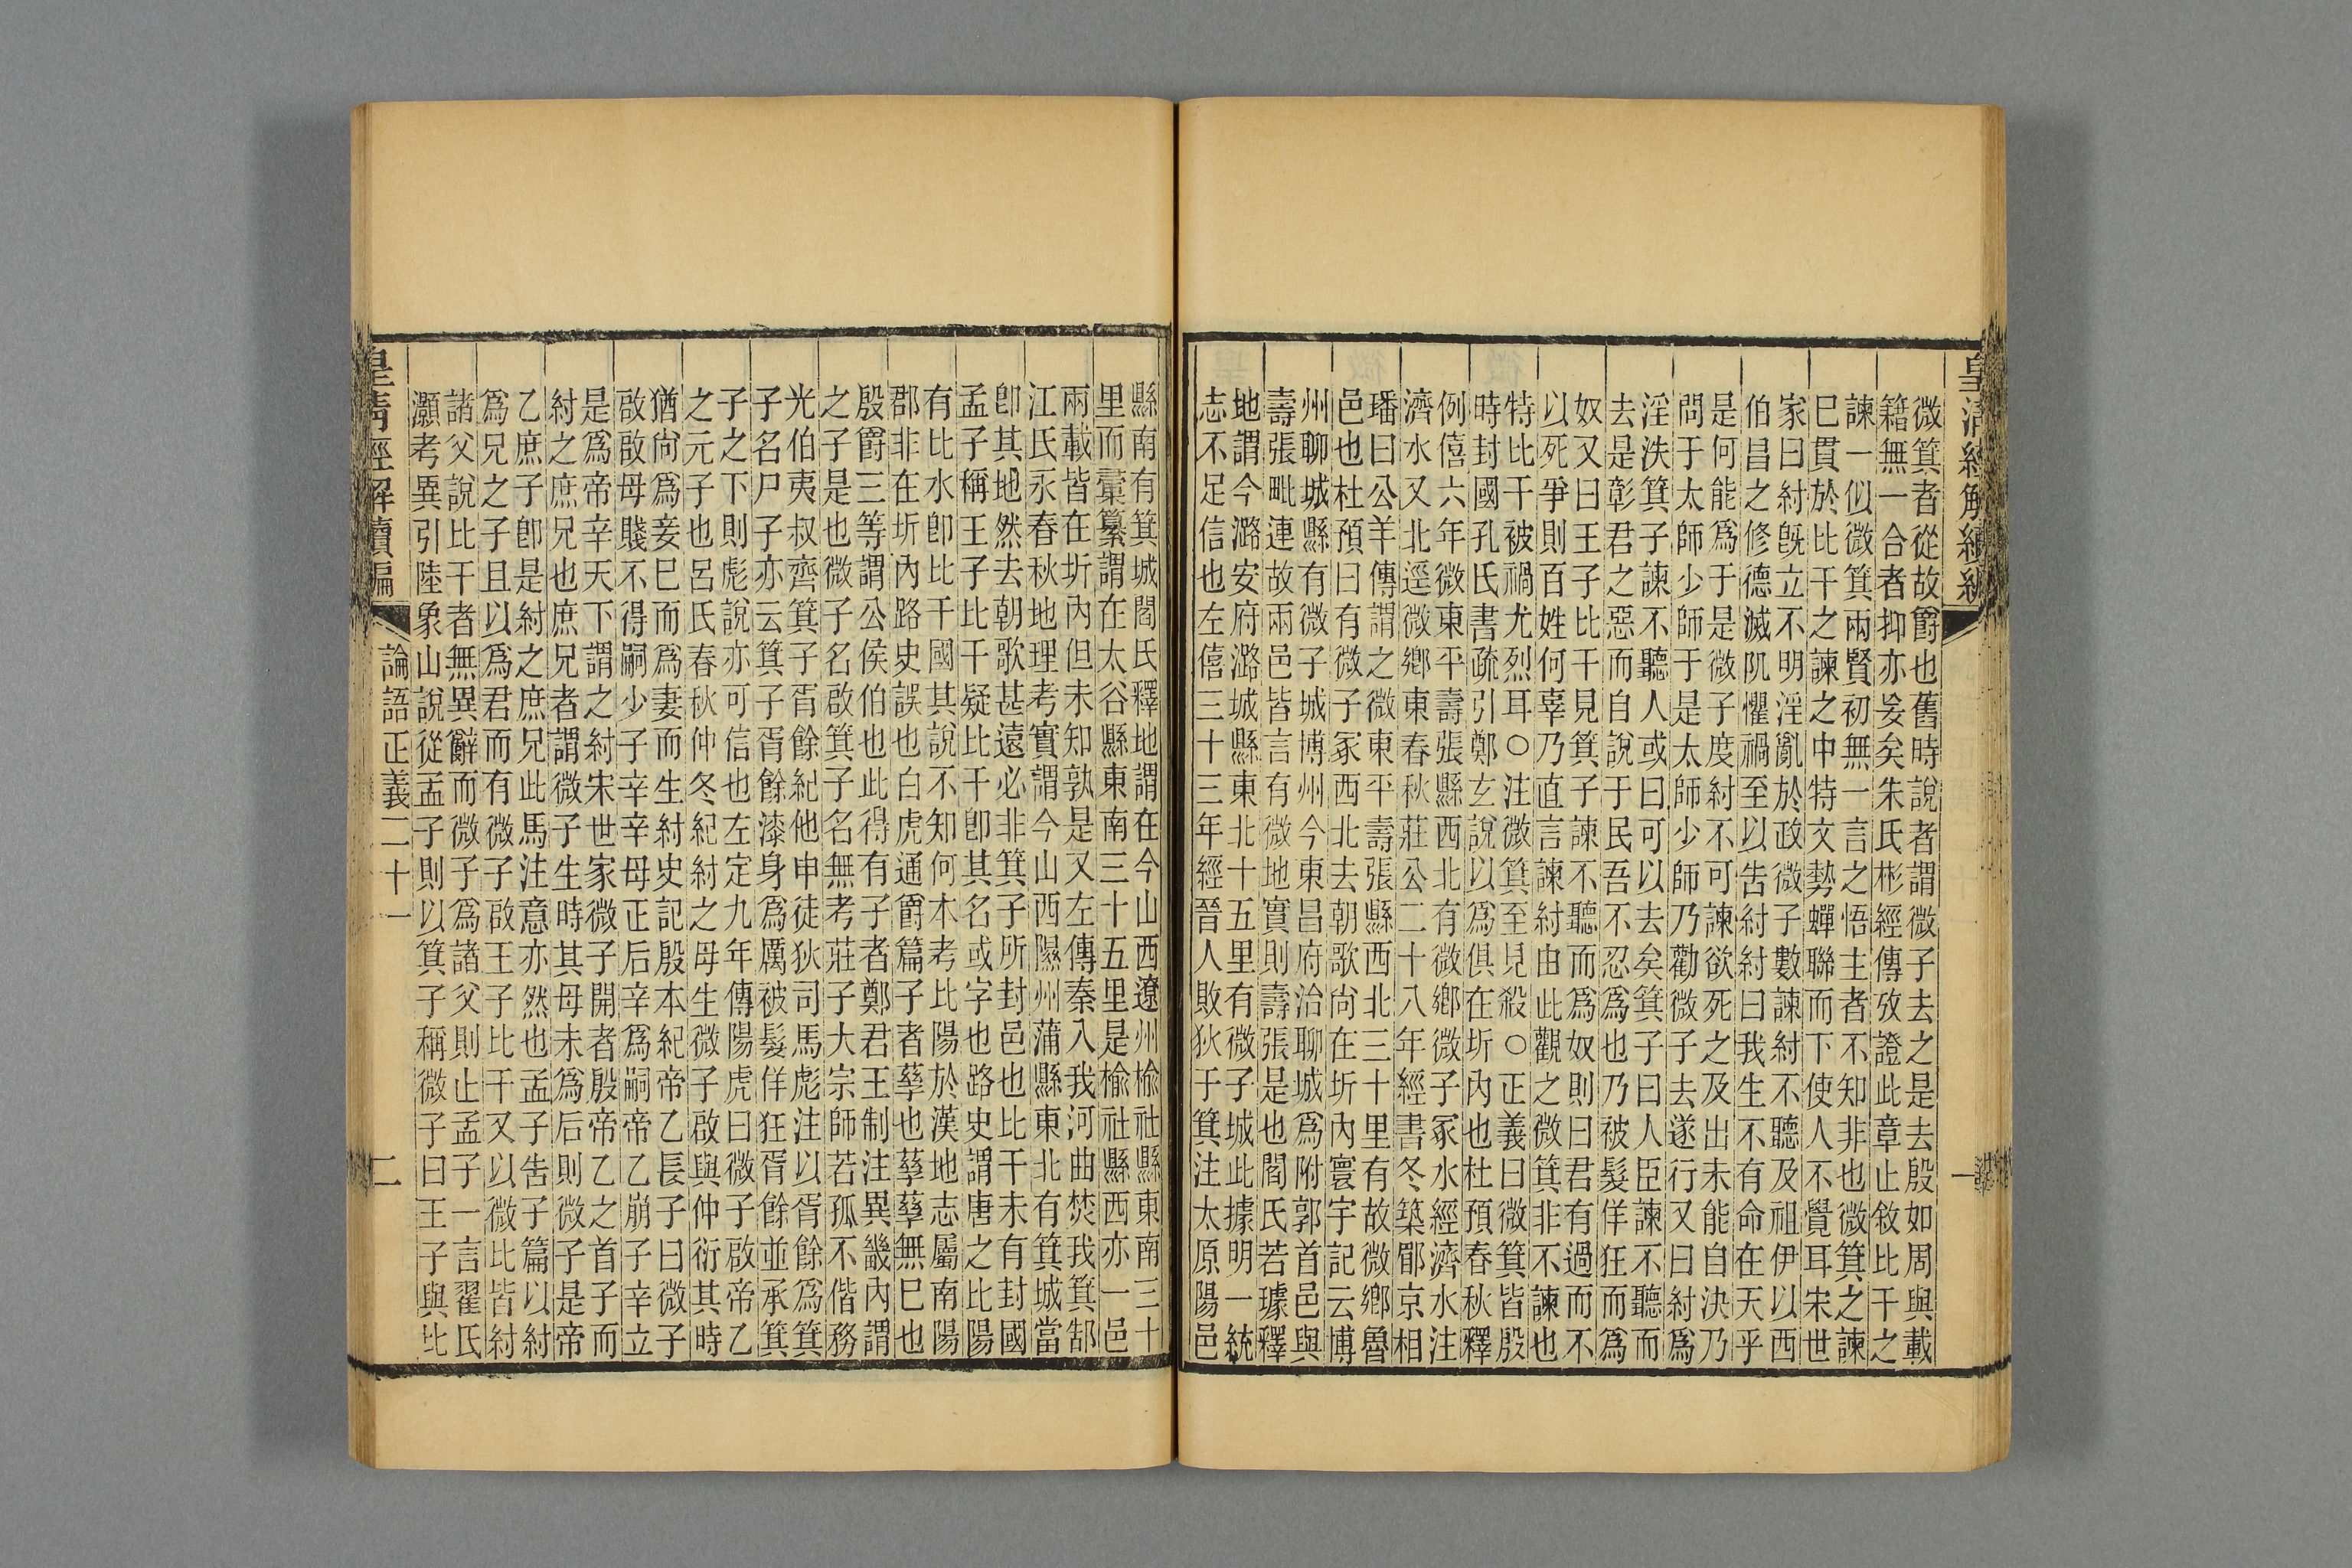 皇清經解續編
一
微箕者從故爵也舊時說者謂微子去之是去殷如周與載
籍無一合者抑亦妄矣朱氏彬經傳攷證此章止敘比干之
諫一似微箕兩賢初無一言之悟主者不知非也微箕之諫
已貫於比干之諫之中特文勢蟬聯而下使人不覺耳宋世
家曰紂旣立不明淫亂於政微子數諫紂不聽及祖伊以西
伯昌之修德滅阢懼禍至以告紂紂曰我生不有命在天乎
是何能爲于是微子度紂不可諫欲死之及出未能自決乃
問于太師少師于是太師少師乃勸微子去遂行又曰紂爲
淫泆箕子諫不聽人或曰可以去矣箕子曰人臣諫不聽而
去是彰君之惡而自說于民吾不忍爲也乃被髮佯狂而爲
奴又曰王子比干見箕子諫不聽而爲奴則曰君有過而不
以死爭則百姓何辜乃直言諫紂由此觀之微箕非不諫也
特比干被禍尤烈耳○注微箕至見殺○正義曰微箕皆殷
時封國孔氏書疏引鄭玄說以爲俱在圻內也杜預春秋釋
例僖六年微東平壽張縣西北有微鄉微子冢水經濟水注
濟水又北逕微鄉東春秋莊公二十八年經書冬築郿京相
璠曰公羊傳謂之微東平壽張縣西北三十里有故微鄉魯
邑也杜預曰有微子冢西北去朝歌尚在圻內寰宇記云博
州聊城縣有微子城博州今東昌府治聊城爲附郭首邑與
壽張毗連故兩邑皆言有微地實則壽張是也閻氏若璩釋
地謂今潞安府潞城縣東北十五里有微子城此據明一統
志不足信也左僖三十三年經晉人敗狄于箕注太原陽邑
縣南有箕城閻氏釋地謂在今山西遼州榆社縣東南三十
里而彙纂謂在太谷縣東南三十五里是榆社縣西亦一邑
兩載皆在圻內但未知孰是又左傳秦入我河曲焚我箕郜
江氏永春秋地理考實謂今山西隰州蒲縣東北有箕城當
卽其地然去朝歌甚遠必非箕子所封邑也比干未有封國
孟子稱王子比干疑比干卽其名或字也路史謂唐之比陽
有比水卽比干國其說不知何本考比陽於漢地志屬南陽
郡非在圻內路史誤也白虎通爵篇子者孳也孳孳無已也
殷爵三等謂公侯伯也此得有子者鄭君王制注異畿內謂
之子是也微子名啟箕子名無考莊子大宗師若孤不偕務
光伯夷叔齊箕子胥餘紀他申徒狄司馬彪注以胥餘爲箕
子名尸子亦云箕子胥餘漆身爲厲被髮佯狂胥餘並承箕
子之下則彪說亦可信也左定九年傳陽虎曰微子啟帝乙
之元子也呂氏春秋仲冬紀紂之母生微子啟與仲衍其時
猶尚爲妾已而爲妻而生紂史記殷本紀帝乙長子曰微子
啟啟母賤不得嗣少子辛辛母正后辛爲嗣帝乙崩子辛立
是爲帝辛天下謂之紂宋世家微子開者殷帝乙之首子而
紂之庶兄也庶兄者謂微子生時其母未爲后則微子是帝
乙庶子卽是紂之庶兄此馬注意亦然也孟子告子篇以紂
爲兄之子且以爲君而有微子啟王子比干又以微比皆紂
諸父說比干者無異辭而微子爲諸父則止孟子一言翟氏
灝考異引陸象山說從孟子則以箕子稱微子曰王子與比
皇清經解續編
論語正義二十一
二